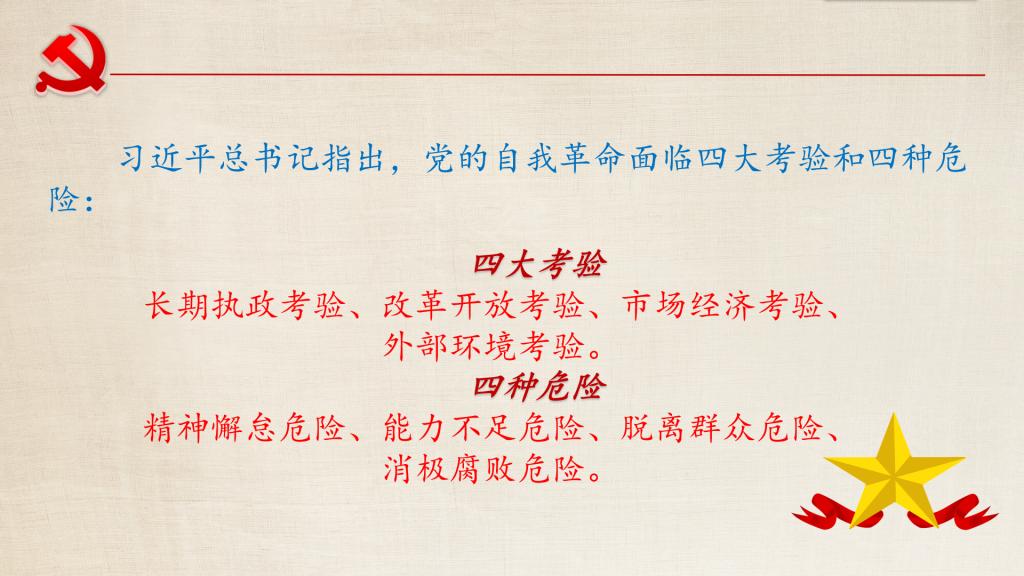 习近平总书记指出，党的自我革命面临四大考验和四种危
险：
四大考验
长期执政考验、改革开放考验、市场经济考验、
外部环境考验。
四种危险
精神懈怠危险、能力不足危险、脱离群众危险、
消极腐败危险。